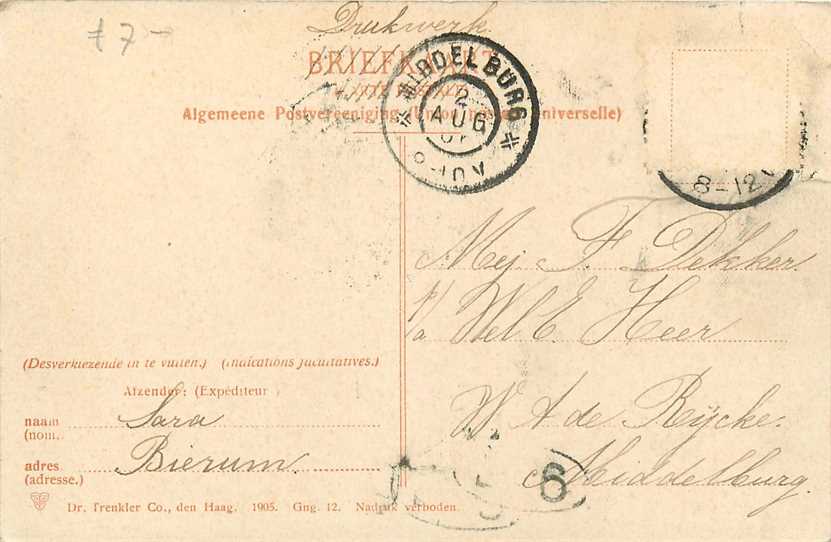 £ 7 –
Drukwerk
BRIEFKAART
Algemeene Postvereeniging (Union postale universelle)
MIDDELBURG
2
AUG
07
8-12V
Mej F. Dekker
p/a Wel E. Heer
W A de Rijcke.
Middelburg.
(Desverkiezende in te vullen.) (Indications facultatives.)
Afzender: (Expéditeur)
naam Sara
(nom.
adres Bierum.
(adresse.)
6
Dr. Trenkler Co., den Haag. 1905. Gng. 12. Nadruk verboden.